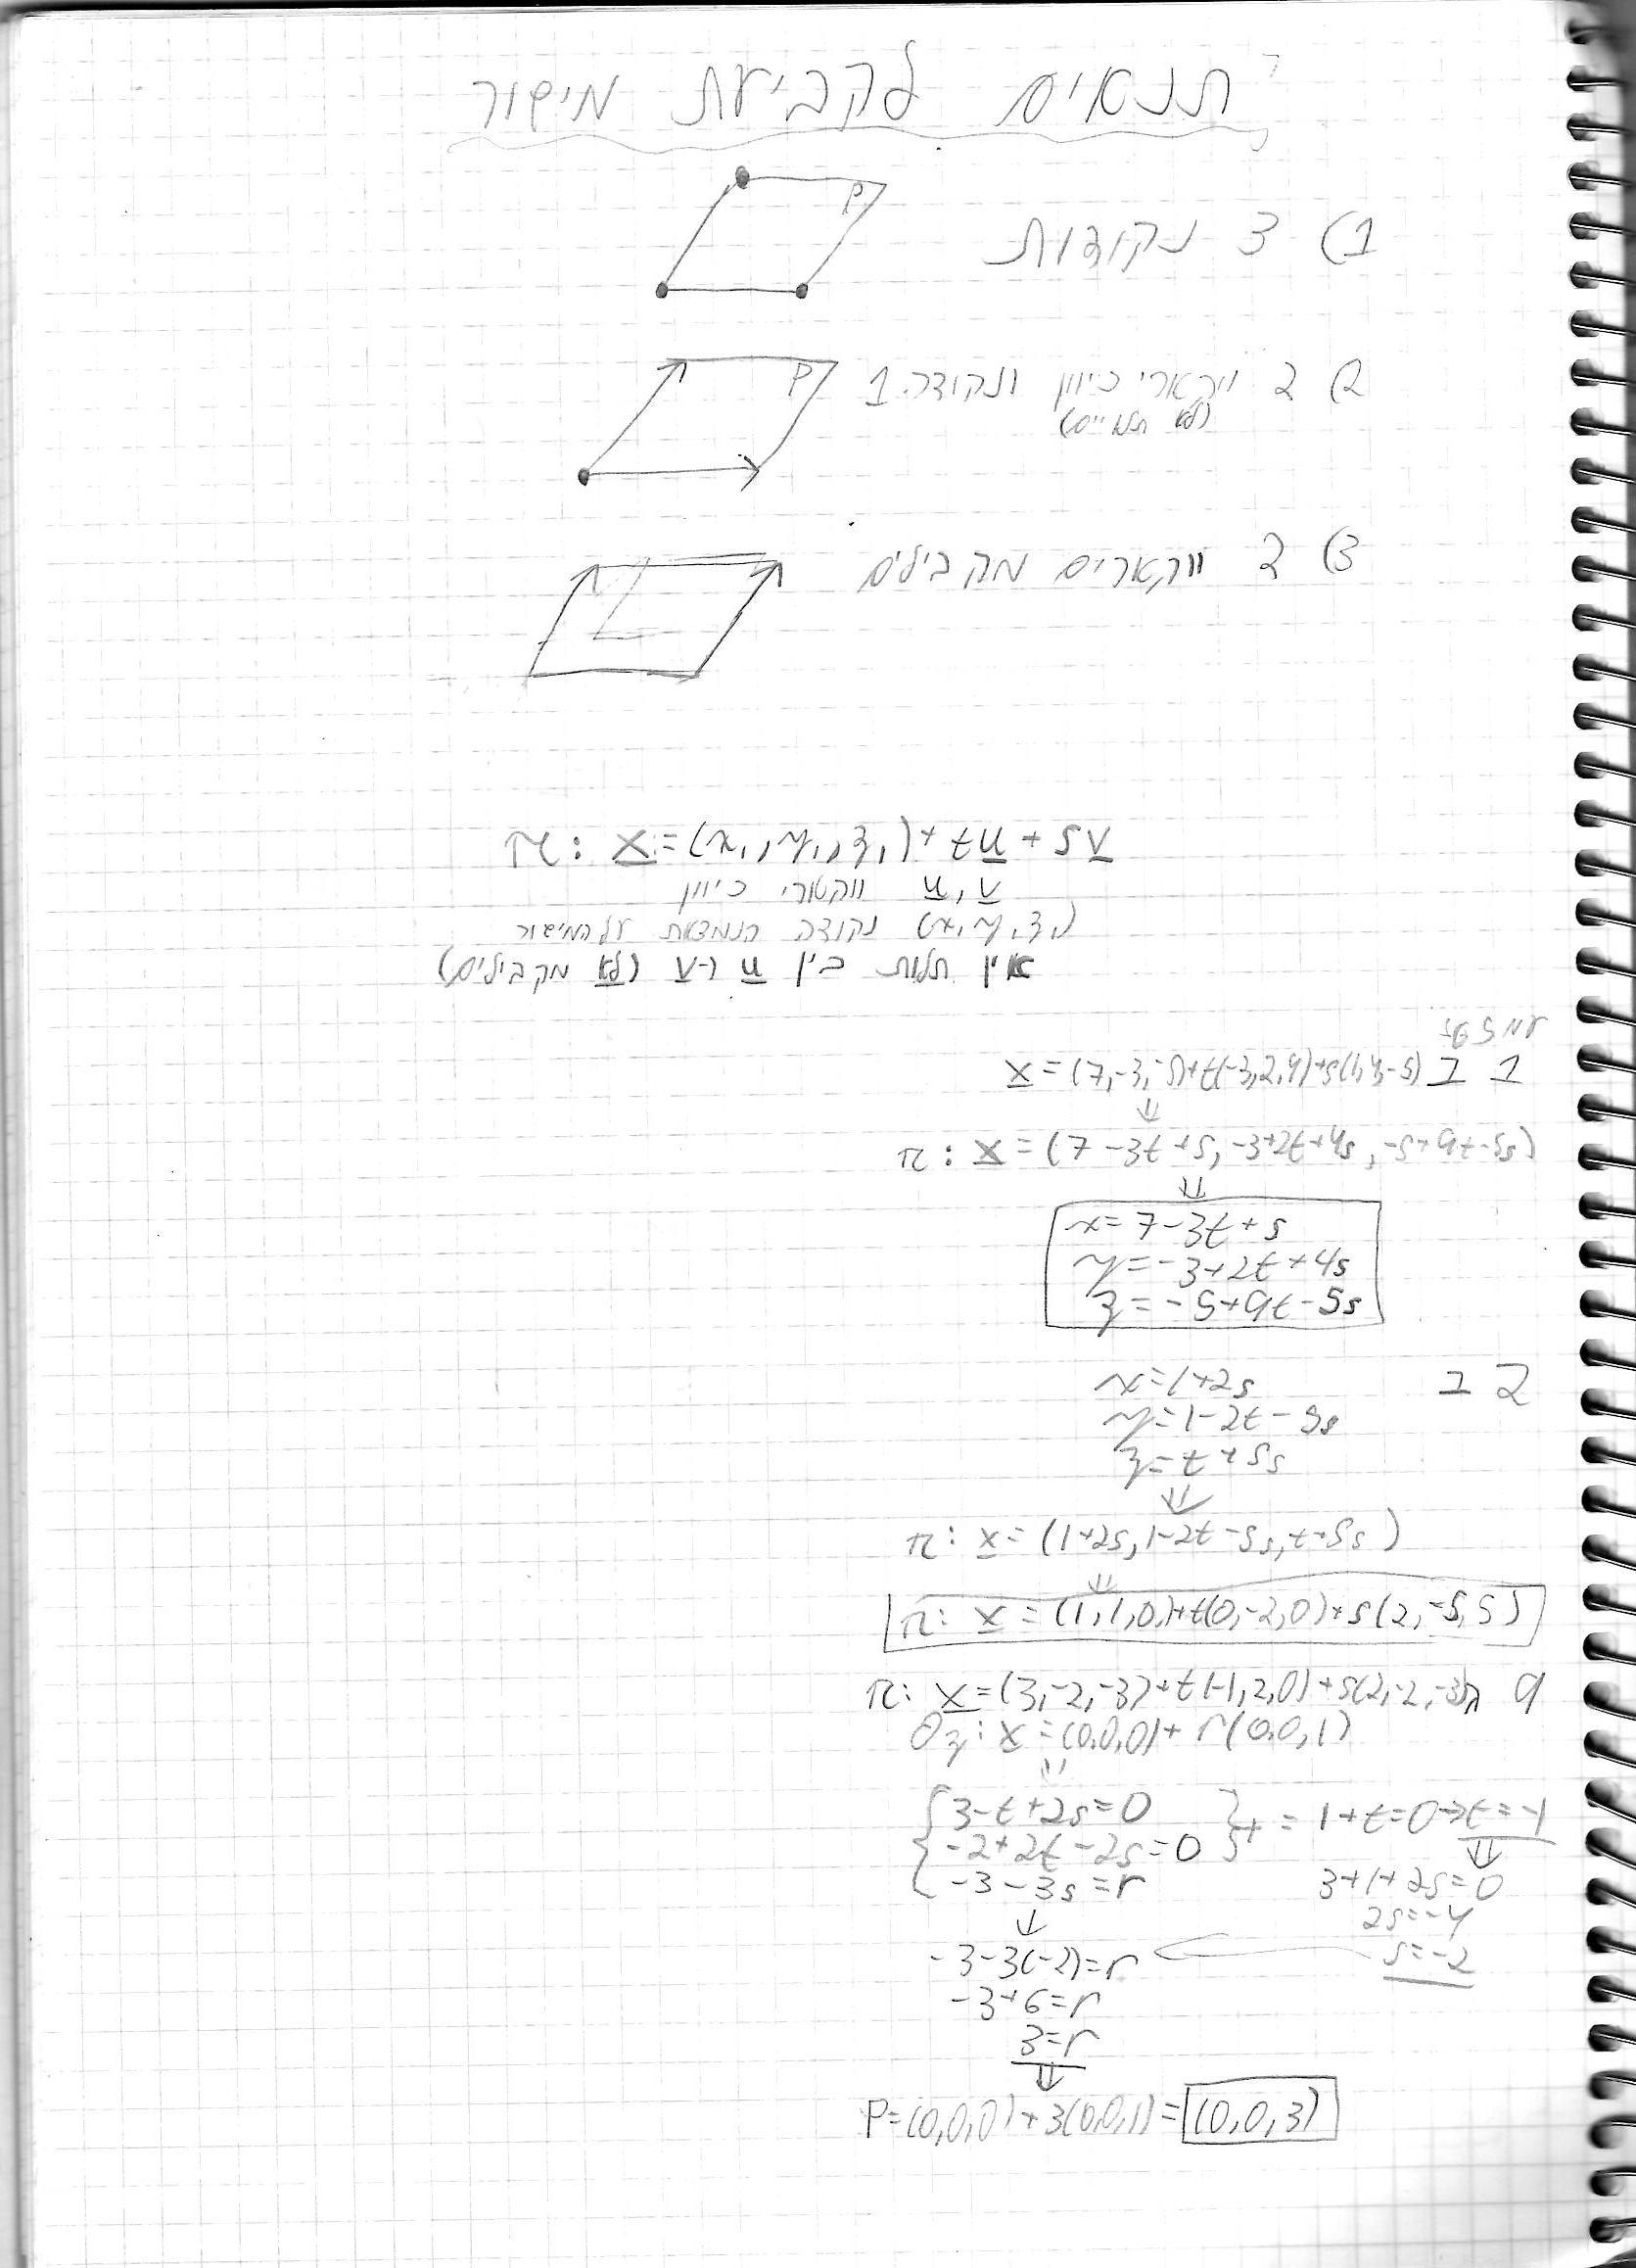 תנאים לקביעת מישור
1) 3 נקודות
P
2) 2 ויקטורי כיוון ונקודה 1
(לא תלויים)
P
3) 2 ווקטורים מקבילים
π: x=(x₁,y₁,z₁)+tu+sv
u,v ווקטורי כיוון
(x₁,y₁,z₁) נקודה הנמצאת על המישור
אין תלות בין u ו-v (לא מקבילים)
1 1 x=(7,-3,-5)+t(-3,2,9)+s(1,4,-5)
⇓
π: x=(7-3t+s, -3+2t+4s, -5+9t-5s)
⇓
x=7-3t+s
y=-3+2t+4s
z=-5+9t-5s
2 1 x=1+2s
y=1-2t-5s
z=t+5s
⇓
π: x=(1+2s,1-2t-5s,t+5s)
⇓
π: x=(1,1,0)+t(0,-2,0)+s(2,-5,5)
9 π: x=(3,-2,-3)+t(-1,2,0)+s(2,-2,-3)
0z: x=(0,0,0)+r(0,0,1)
⇓
3-t+2s=0
-2+2t-2s=0 }+ = 1+t=0→t=-1
-3-3s=r
⇓
3+1+2s=0
2s=-4
s=-2
↓
-3-3(-2)=r
-3+6=r
3=r
⇓
P=(0,0,0)+3(0,0,1)=(0,0,3)